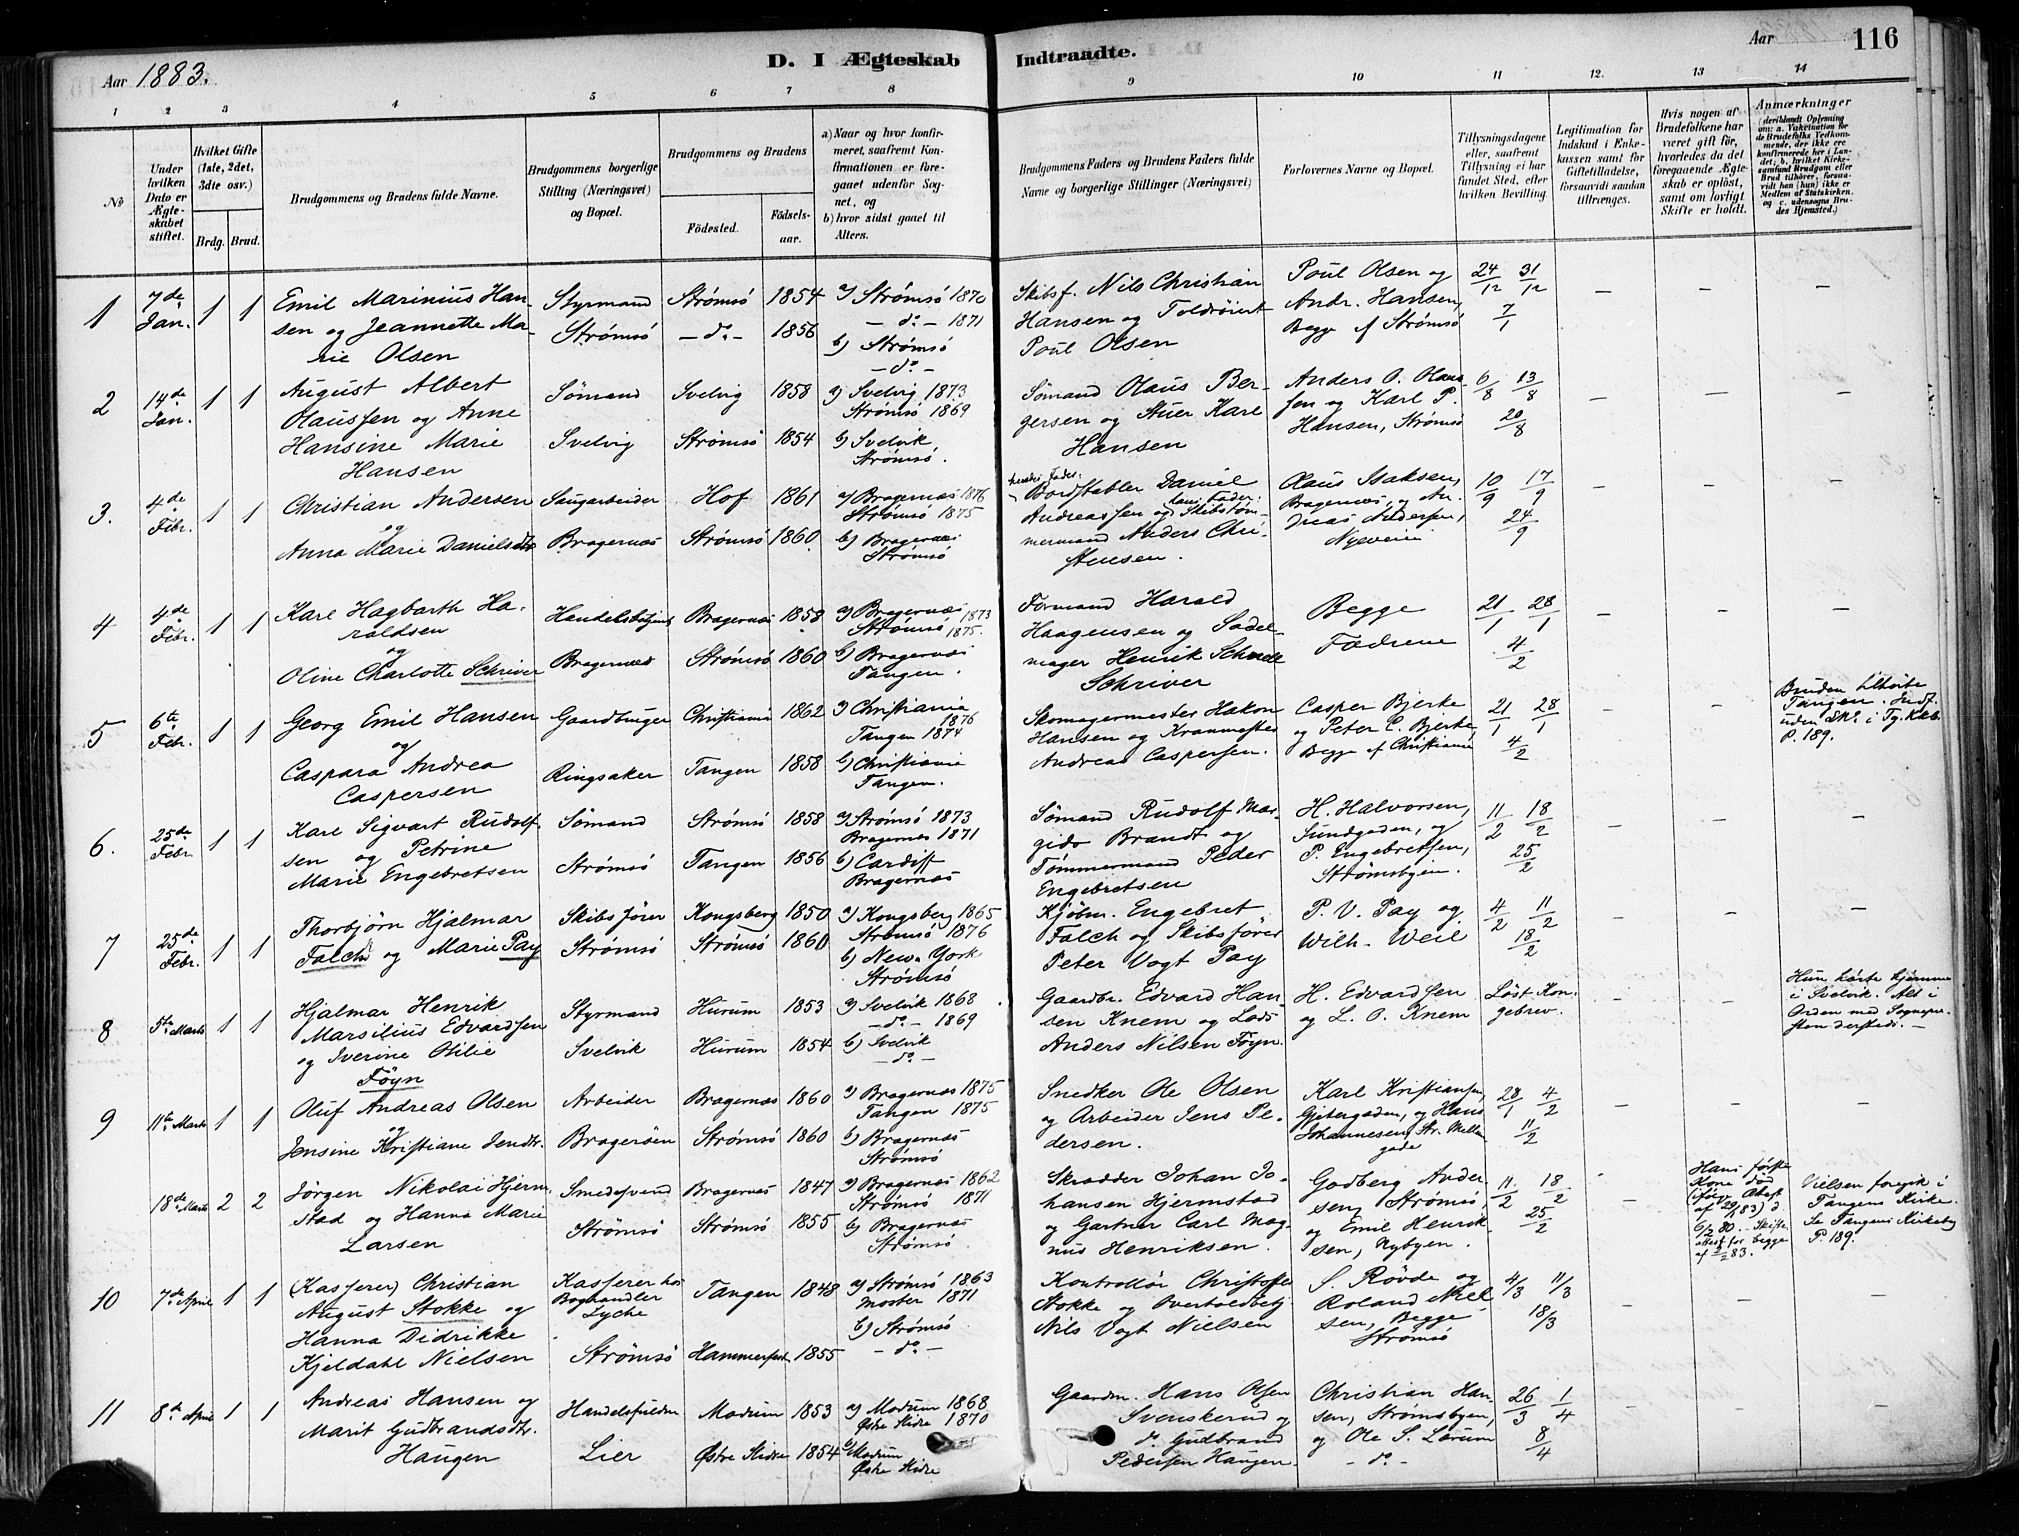 Aar 1883.
D. I Ægteskab Indtraadte.
Aar 116
1 2 3 4 5 6 7 8 9 10 11 12. 13 14
No
Under hvilken Dato er Ægteskabet stiftet.
Hvilket Gifte (1ste, 2det, 3dte osv.)
Brdg. Brud.
Brudgommens og Brudens fulde Navne.
Brudgommens borgerlige Stilling (Næringsvei) og Bopæl.
Brudgommens og Brudens
Födested. Födselsaar.
a) Naar og hvor konfirmeret, saafremt Konfirmationen er foregaaet udenfor Sognet, og
b) hvor sidst gaaet til Alters.
Brudgommens Faders og Brudens Faders fulde Navne og borgerlige Stillinger (Næringsvei)
Forlovernes Navne og Bopæl.
Tillysningsdagene eller, saafremt Tillysning ei har fundet Sted, efter hvilken Bevilling.
Legitimation for Indskud i Enkekassen samt for Giftetilladelse, forsaavidt saadan tiltrænges.
Hvis nogen af Brudefolkene har været gift før, hvorledes da det foregaaende Ægteskab er oplöst, samt om lovligt Skifte er holdt.
Anmærkninger
(deriblandt Oplysning om: a. Vakcination for de Brudefolks Vedkommende, der ikke ere konfirmerede her i Landet; b. hvilket Kirkesamfund Brudgom eller Brud tilhörer, forsaavidt han (hun) ikke er Medlem af Statskirken, og c. udensogns Brudes Hjemsted.)
1 7de Jan. 1 1 Emil Marinius Hansen og Jeannette Marie Olsen
Styrmand Strømsö
Strømsö 1854
— do — 1856
a) Strømsö 1870
— do — 1871
b) Strømsö
— do —
Skibsf. Nils Christian Hansen og Toldröiert Poul Olsen
Poul Olsen og Andr. Hansen, Begge af Strømsö
24/12 31/12 7/1
— — —
2 14de Jan. 1 1 August Albert Olaussen og Anne Hansine Marie Hansen
Sömand Svelvig
Svelvig 1858
Strömsö 1854
a) Svelvig 1873
Strömsö 1869
b) Svelvik
Strömsö.
Sømand Olaus Bergersen og Stuer Karl Hansen
Anders O. Olaussen og Karl P. Hansen, Strömsö
6/8 13/8 20/8
— — —
3. 4de Febr. 1 1 Christian Andersen og Anna Marie Danielsdtr
Saugarbeider Bragernæs
Hof 1861
Strömsö 1860
a) Bragernæs 1876
Strömsö 1875
b) Bragernæs
Strömsö
Bordstabler Daniel Andreassen og Skibstømmermand Anders Christensen.
Olaus Isaksen, Bragernæs, og Andreas Andersen, Nyveien
10/9 17/9 24/9
— — —
4 4de Febr. 1 1 Karl Hagbarth Haroldsen og Oline Charlotte Schriver
Handelsbetjent Bragernæs
Bragernæs 1858
Strömsö 1860
a) Bragernæs 1873
Strömsö 1875.
b) Bragernæs
Tangen.
Formand Harald Haagensen og Sadelmager Henrik Schriver
Begge Fædrene
21/1 28/1 4/2
— — —
5 6te Febr. 1 1 Georg Emil Hansen og Caspara Andrea Caspersen
Gaardbruger Ringsaker
Christiania 1862
Tangen 1858
a) Christiania 1876
Tangen 1874
b) Christiania
Tangen.
Skomagermester Hakon Hansen og Kranmester Andreas Caspersen.
Casper Bjerke og Peter C. Bjerke, Begge af Christiania
21/1 28/1 4/2
— —
Bruden tilhörte Tangen. Indf. uden No i Tg. Kkb. P. 189.
6. 25de Febr. 1 1 Karl Sigvart Rudolfsen og Petrine Marie Engebretsen
Sømand Strømsö
Strømsö 1858
Tangen 1856
a) Strømsö 1873
Bragernæs 1871
b) Cardiff
Bragernæs
Sømand Rudolf Margido Brandt og Tømmermand Peder Engebretsen
H. Halvorsen, Sundgaden, og P. Engebretsen, Strömsbyen.
11/2 18/2 25/2
— — —
7 25de Febr. 1 1 Thorbjörn Hjalmar Falch og Marie Pay
Skibsförer Strømsö
Kongsberg 1850
Strömsö 1860
a) Kongsberg 1865
Strömsö 1876
b) New-York
Strömsö
Kjöbm. Engebret Falch og Skibsförer Peter Vogt Pay
P. V. Pay og Wilh. Weil
4/2 11/2 18/2
— — —
8 5te Marts 1 1 Hjalmar Henrik Marsilius Edvardsen og Iverine Otilie Föyn
Styrmand Svelvik
Hurum 1853
Hurum 1854
a) Svelvik 1868
— do — 1869
b) Svelvik
— do —
Gaardbr. Edvard Hansen Knem og Lods Anders Nilsen Föyn.
H. Edvardsen og L. O. Knem
Löst Kongebrev.
— —
Hun hörte hjemme i Svelvik. Alt i Orden med Sognepresten dersteds. —
9 11te Marts 1 1 Oluf Andreas Olsen og Jensine Kristiane Jensdtr.
Arbeider Bragerøen
Bragernæs 1860
Strömsö 1860
a) Bragernæs 1875
Tangen 1875
b) Bragernæs
Strömsö
Snedker Ole Olsen og Arbeider Jens Pedersen.
Karl Kristiansen, Gjetergaden, og Hans Johannesen, Str. Mellemgade
28/1 4/2 11/2
— — —
18de Marts 2 2 Jörgen Nikolai Hjermstad og Hanna Marie Larsen
Smedesvend Strömsö
Bragernæs 1847
Strömsö 1855
a) Bragernæs 1862
Strömsö 1871
b) Bragernæs
Strömsö
Skrædder Johan Johansen Hjermstad og Gartner Carl Magnus Henriksen.
Godberg Andersen, Strömsö, og Emil Henriksen, Nybyen.
11/2 18/2 25/2
—
Hans förste Kone död (ifölg. Attest af 29/1 83) d. 6/2 80. Skifteattest for begge af 2/2 83.
Vielsen foregik i Tangens Kirke. Se Tangens Kirkebog P. 189.
10 7de April 1 1 (Kasserer) Christian August Stokke og Hanna Didrikke Kjeldahl Nielsen
Kasserer hos Boghandler Lyche Strömsö
Tangen 1848
Hammerfest 1855
a) Strömsö 1863
Moster 1871
b) Strömsö
— do —
Kontrollör Christoffer Stokke og Overtoldbetj. Nils Vogt Nielsen
S. Rövde og Roland Nielsen, Begge Strömsö
4/3 11/3 18/3
— — —
11 8de April 1 1 Andreas Hansen og Marit Gudbrandsdtr. Haugen
Handelsfuldm Lier
Modum 1853
Østre Slidre 1854
a) Modum 1868
Østre Slidre 1870
b) Modum
Østre Slidre
Gaardm. Hans Olsen Svenskerud og do. Gudbrand Pedersen Haugen.
Christian Hansen, Strömsbyen, og Ole S. Lorum — do —
26/3 1/4 8/4
— — —